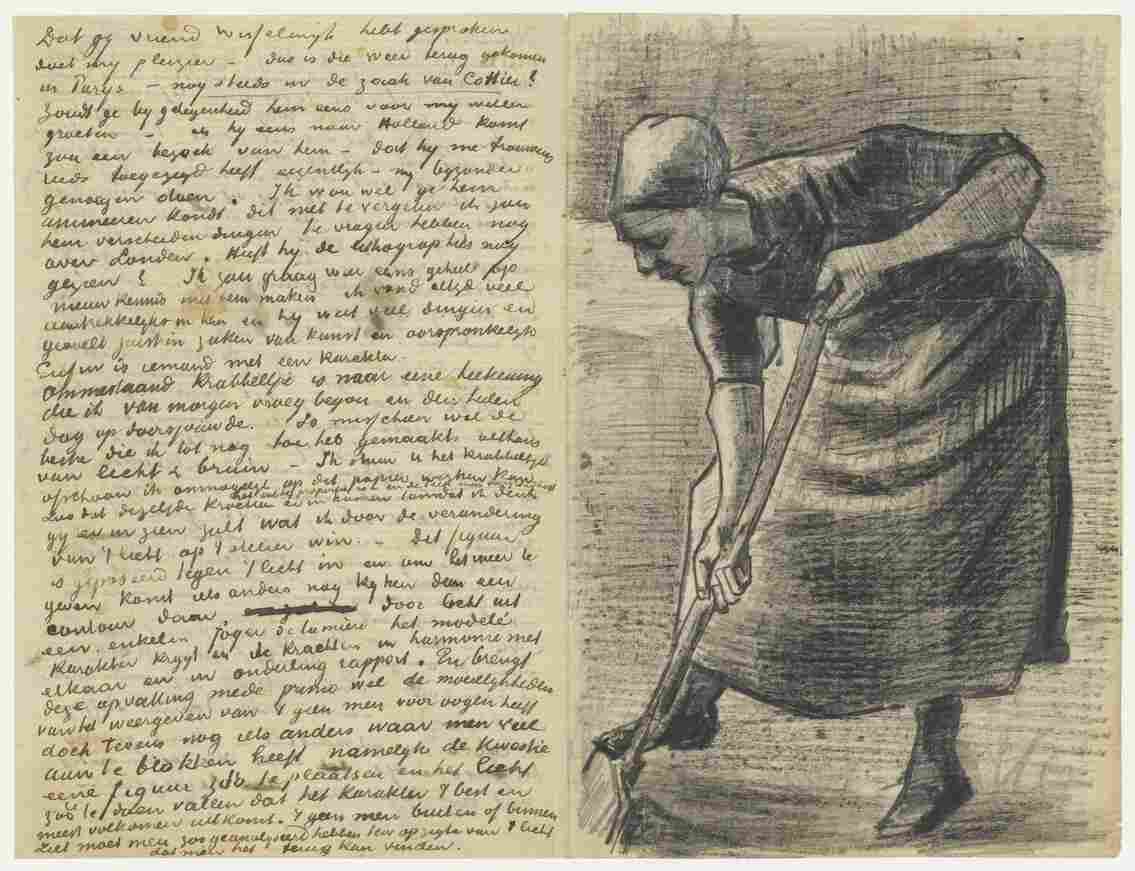 Dat gy vriend Wisselingh hebt gesproken
doet my pleizier – dus is die weer terug gekomen
in Parys – nog steeds in de zaak van Cottier?
Zoudt ge by gelegenheid hem eens voor my willen
groeten – als hy eens naar Holland komt
zou een bezoek van hem – dat hy me trouwens
reeds toegezegd heeft eigentlyk – my byzonder
genoegen doen. Ik wou wel ge hem
animeeren kondt dit niet te vergeten ik zou
hem verscheiden dingen te vragen hebben nog
over Londen. Heeft hy de lithographies nog
gezien? Ik zou graag weer eens geheel op
nieuw kennis met hem maken ik vond altyd veel
aantrekkelyks in hem en hy weet veel dingen en
gevoelt juist in zaken van kunst en oorspronkelyk
Enfin is iemand met een karakter.
Ommestaand krabbeltje is naar eene teekening
die ik van morgen vroeg begon en den heelen
dag op doorsjouwde. Is misschien wel de
beste die ik tot nog toe heb gemaakt althans
van licht & bruin – Ik stuur u het krabbeltje
ofschoon ik onmogelyk op dit papier werken kan
zoo dat dezelfde krachten er in komen omdat ik denk
gy er in zien zult wat ik door de verandering
van 't licht op 't atelier win. – Dit figuur
is geposeerd tegen 't licht in en om het weer te
geven komt iets anders nog kyken dan een
contour daar door licht uit
een enkelen foyer de lumière het modelé
karakter krygt en de krachten in harmonie met
elkaar en in onderling rapport. En brengt
deze opvatting mede primo wel de moeielykheden
van het weergeven van 't geen men voor oogen heeft
doch tevens nog iets anders waar men veel
aan te blokken heeft namelyk de kwestie
eene figuur zóó te plaatsen en het licht
zóó te doen vallen dat het karakter 't best en
meest volkomen uitkomt. 't geen men buiten of binnen
ziet moet men zoo geanalyseerd hebben ten opzigte van 't licht
dat men het terug kan vinden.